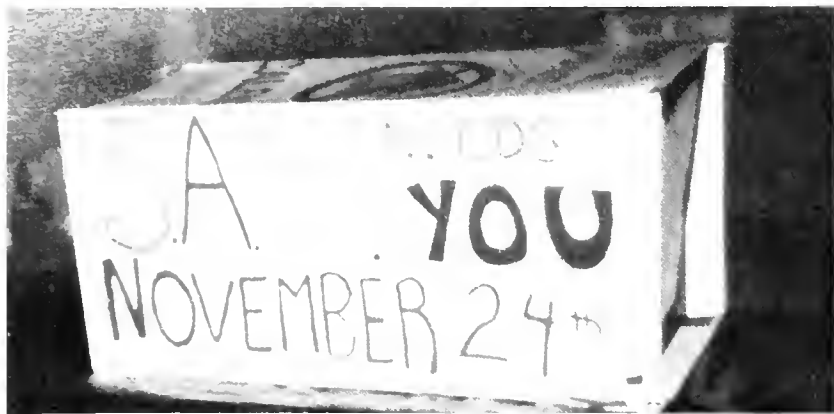 A.
YOU
NOVEMBER 24th